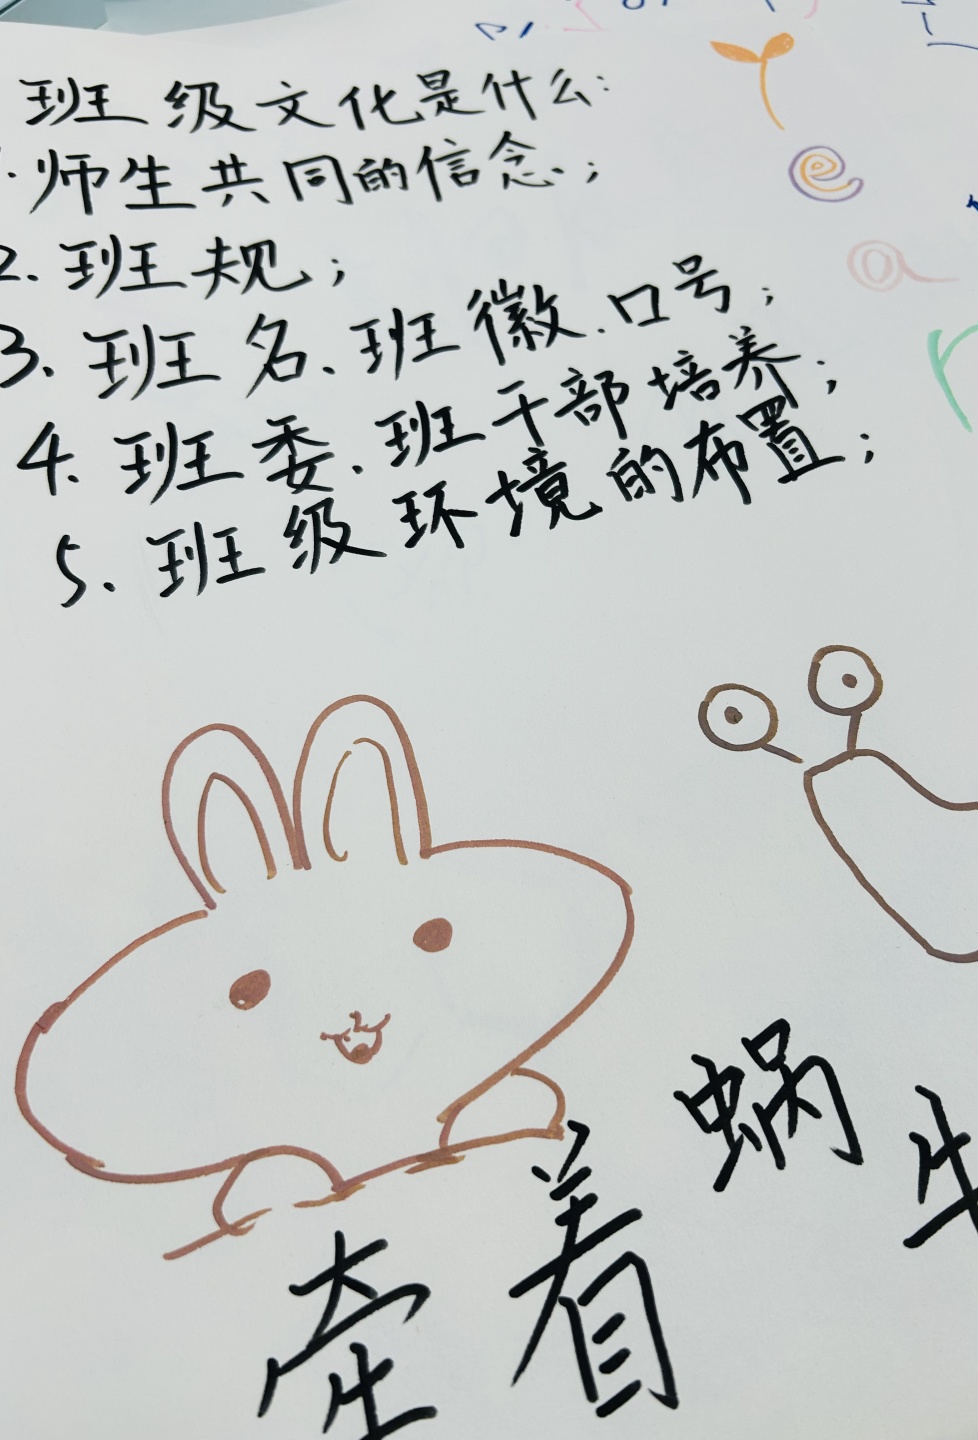 班级文化是什么:
1.师生共同的信念;
2.班规;
3.班名、班徽、口号;
4.班委、班干部培养;
5.班级环境的布置;
牵着蜗牛